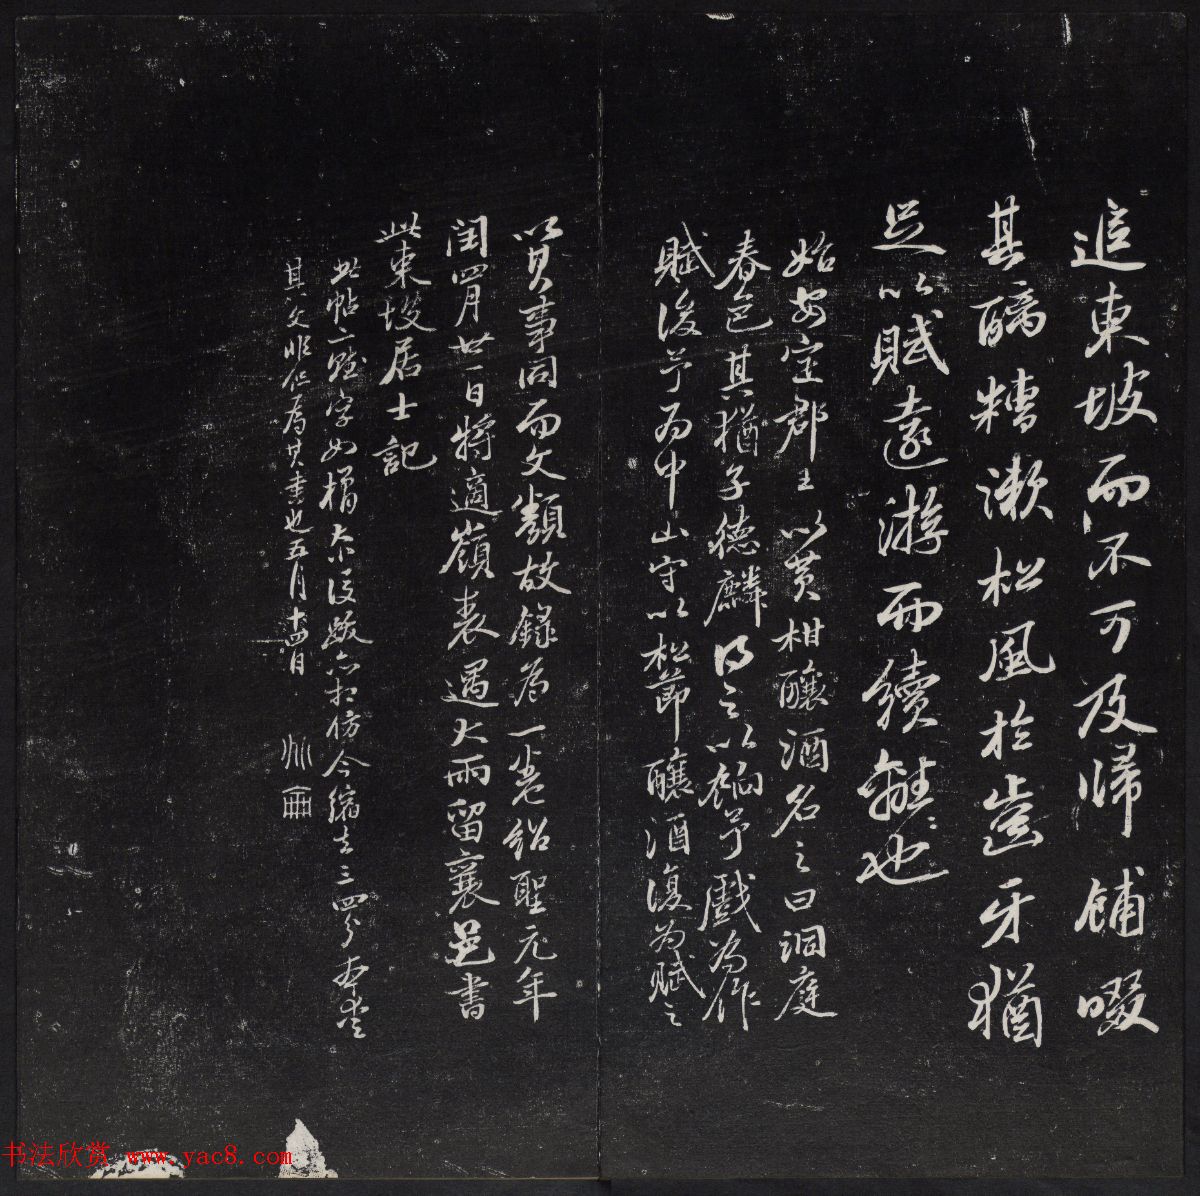 追東坡而不可及歸餔啜
其醨糟漱松風於齒牙猶
足以賦遠游而續離〻也
始安定郡王以黃柑釀酒名之曰洞庭
春色其猶子德麟得之以餉予戲為作
賦後予為中山守以松節釀酒復為賦之
以其事同而文類故錄為一卷紹聖元年
閏四月廿一日將適嶺表遇大雨留襄邑書
此東坡居士記
此帖二賦字如大後跋亦相仿今縮去三四分本愛
其文非但為其書也五月十四日
书法欣赏 www.yac8.com